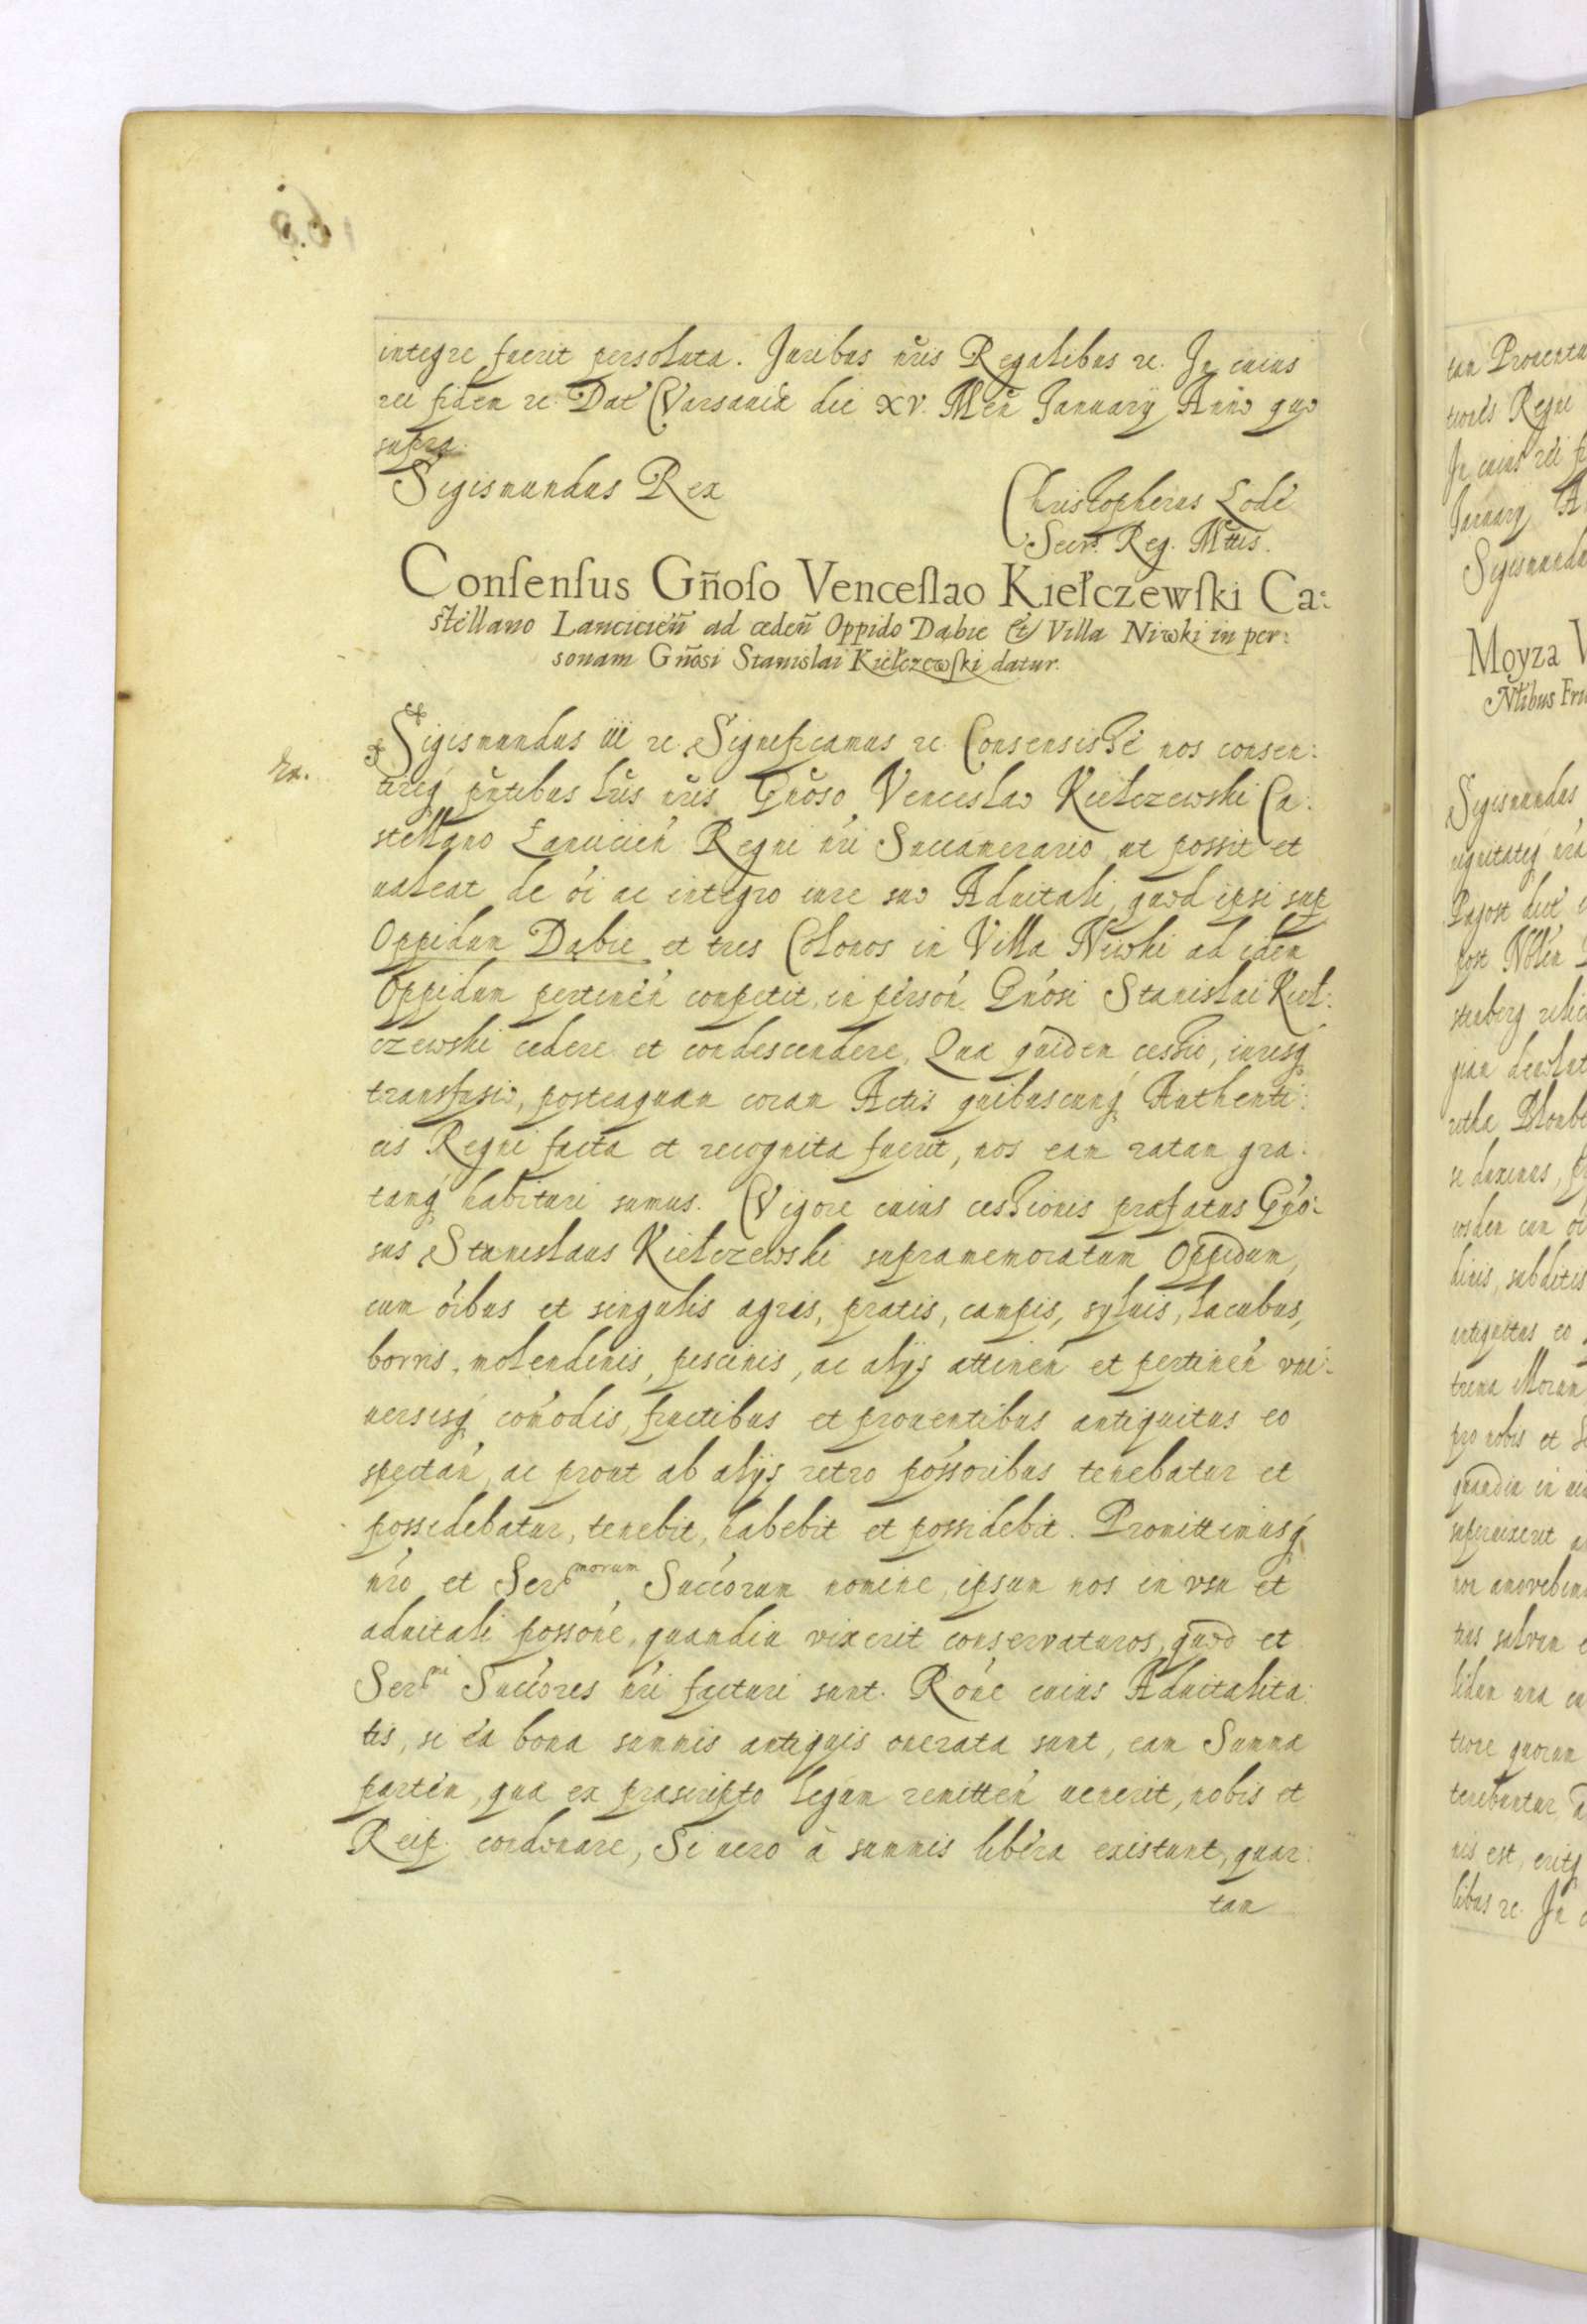 integre fuerit persoluta. Juribus nris Regalibus rc. In cuius
rei fidem rc. Dat Varsaviæ die XV. Men January Anno quo
supra.
Sigismundus Rex
Christopherus Lode
Secrs. Reg. Mttis.
Conſenſus Gñoſo Venceſlao Kiełczewſki Ca:
ſtellano Lancicieñ ad cedeñ Oppido Dąbie et Villa Niwki in per:
sonam Gñosi Stanislai Kiełczewſki datur.
Sigismundus iii rc. Significamus rc. Consensisse nos consen:
tireq pntibus lris nris Gnoso Venceslao Kiełczewski Ca:
stellano Lancicien Regni nri Succamerario, ut possit et
ualeat de oi ac integro iure suo Aduitali, quod ipsi sup
Oppidum Dąbie et tres Colonos in Villa Niwki ad idem
Oppidum pertinen competit in person Gnosi Stanislai Kieł:
czewski cedere et condescendere, Qua quidem cessio, iurisq
transfusio, posteaquam coram Actis quibuscunq Authenti:
cis Regni facta et recognita fuerit, nos eam ratam gra:
tamq habituri sumus. Vigore cuius cessionis præfatus Gno:
sus Stanislaus Kiełczewski supramemoratum Oppidum,
cum oibus et singulis agris, pratis, campis, syluis, lacubus,
borris, molendinis, piscinis, ac alijs attinen et pertinen vni:
uersisq comodis, fructibus et prouentibus antiquitus eo
spectan, ac prout ab alijs retro possoribus tenebatur et
possidebatur, tenebit, habebit et possidebit. Promittimusq
nro et Ser morum Succorum nomine, ipsum nos in vsu et
aduitali possone, quamdiu vixerit conservaturos, quod et
Ser mi Succores nri facturi sunt. Rone cuius Aduitalita:
tis, si ea bona summis antiquis onerata sunt, eam Summa
partem, qua ex præscripto legum remitten uenerit, nobis et
Reip. condonare, Si uero à summis libera existunt, quar:
tam